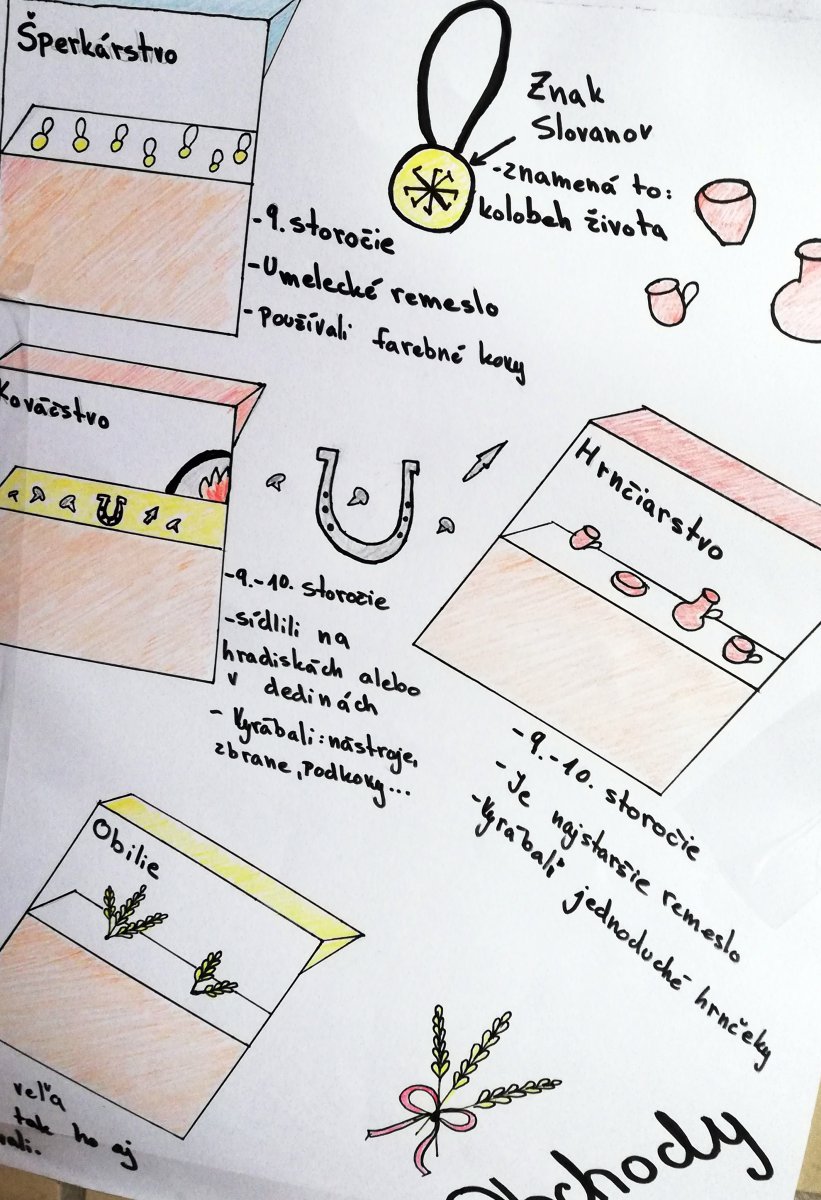 Šperkárstvo
- 9. storočie
- Umelecké remeslo
- používali farebné kovy
Znak
Slovanov
- znamená to:
kolobeh života
Kováčstvo
- 9.-10. storočie
- sídlili na
hradiskách alebo
v dedinách
- Vyrábali: nástroje,
zbrane, podkovy...
Hrnčiarstvo
- 9.-10. storočie
- Je najstaršie remeslo
- Vyrábali jednoduché hrnčeky
Obilie
veľa
tak ho aj
Obchody